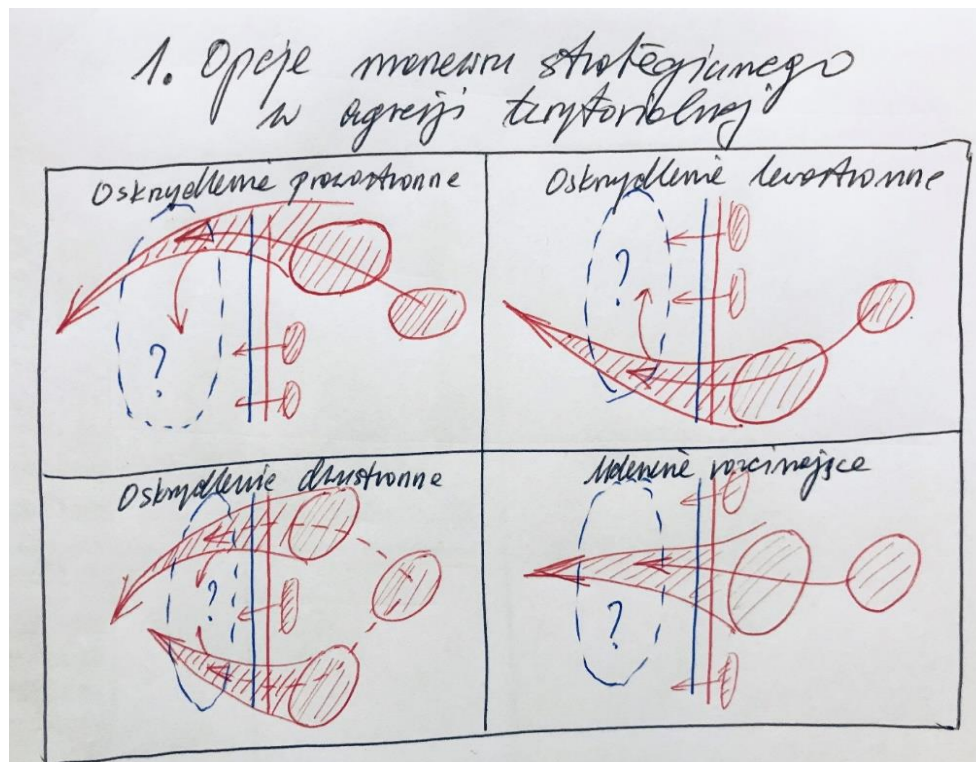 1. Opcje manewru strategicznego
w agresji terytorialnej
Oskrzydlenie prawostronne
?
Oskrzydlenie lewostronne
?
Oskrzydlenie dwustronne
?
Uderzenie rozcinające
?